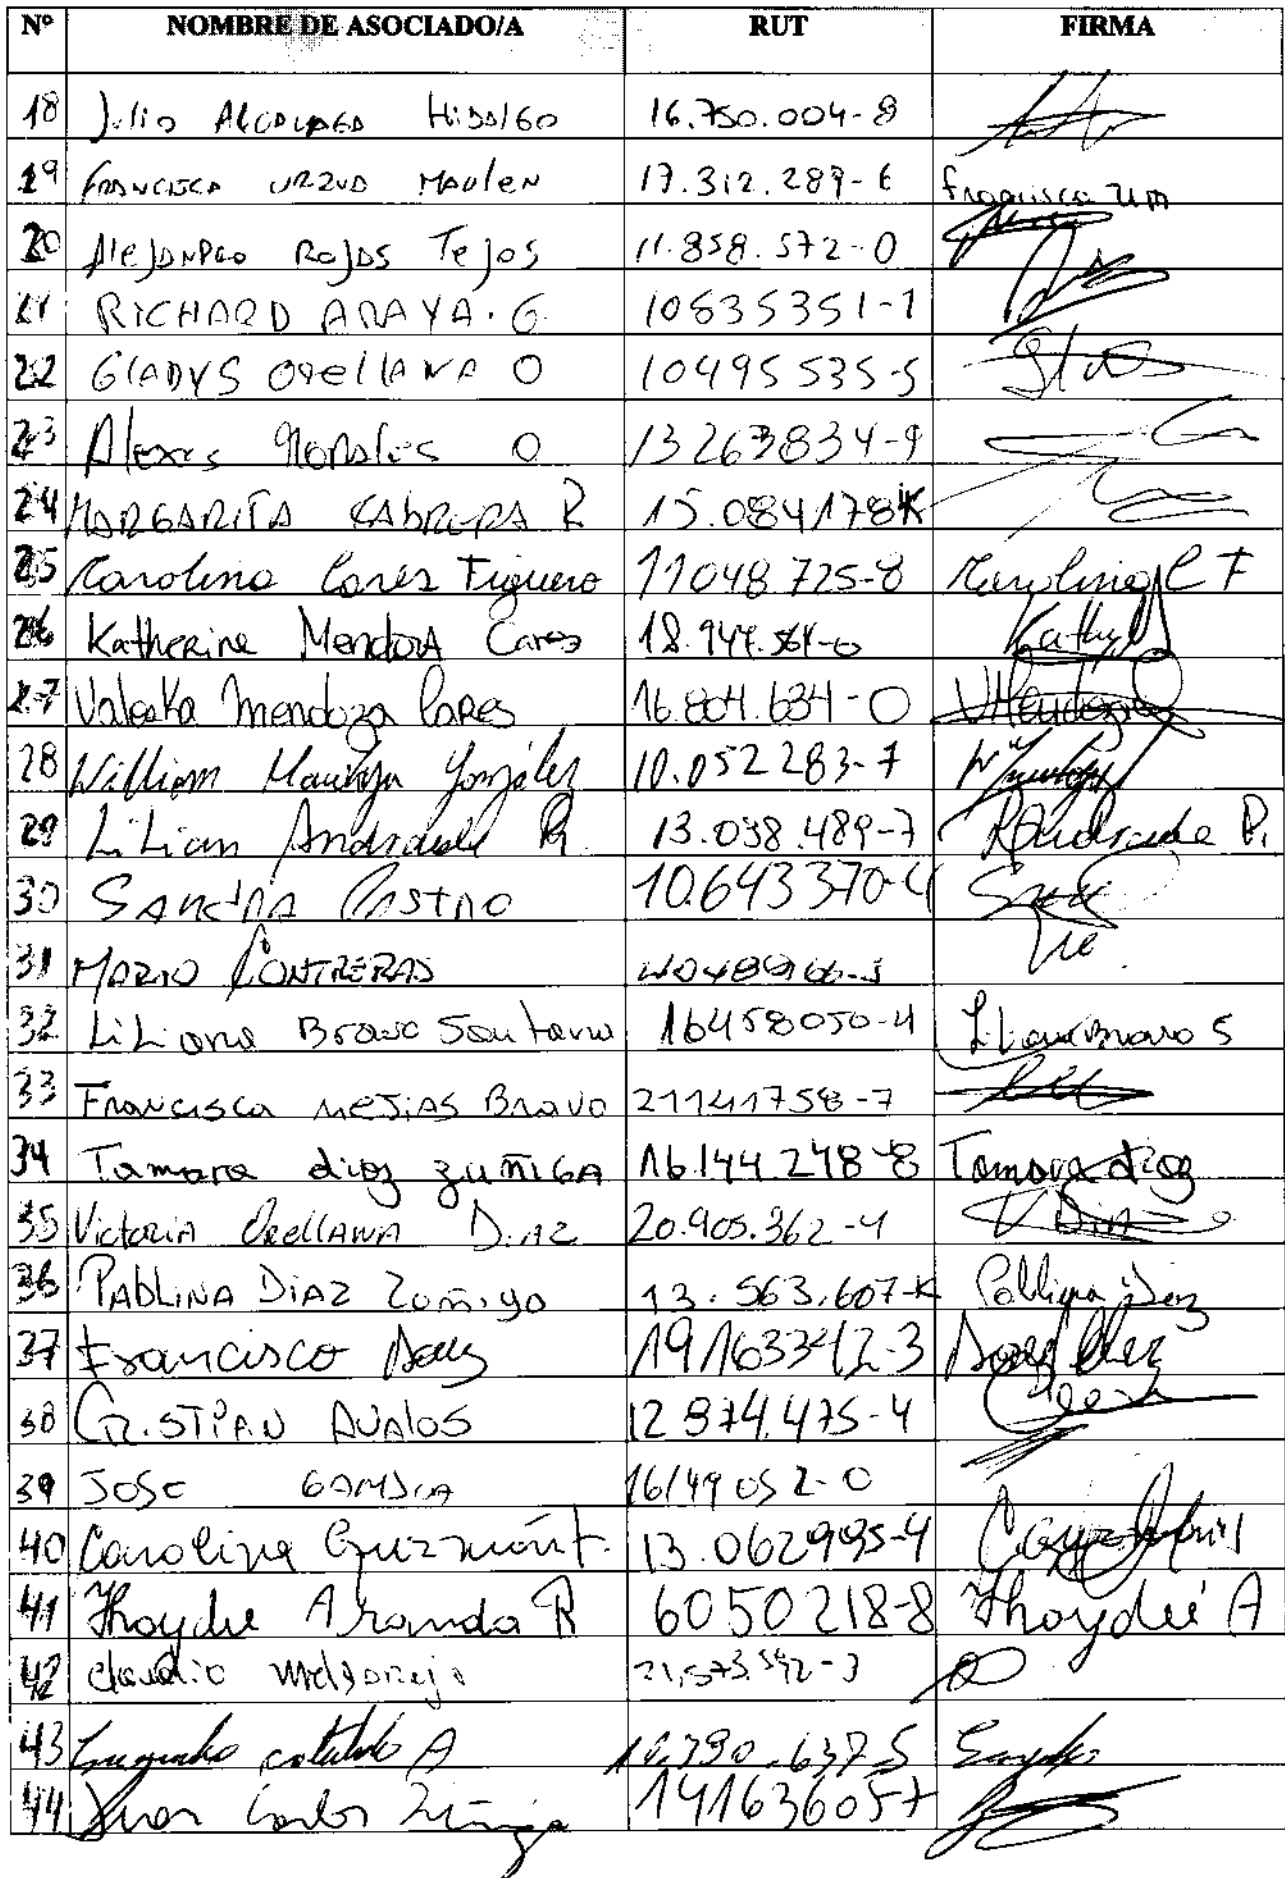 Nº NOMBRE DE ASOCIADO/A RUT FIRMA
18 Julio Hidalgo 16.750.004-8
19 Francisca Urzua Maulen 17.312.289-6 Francisca UM
20 Alejandro Rojas Tejos 11.858.572-0
21 RICHARD ARAYA. G. 10635351-1
22 GLADYS Orellana O 10495535-5
23 Alexis Morales O 13263834-9
24 MARGARITA CAbRERA R 15.084178K
25 Carolina Cares Figuero 11048.725-8 Carolina C F
26 Katherine Mendoza Cares 18.944.564-0 Kathy
27 Valeska Mendoza Cares 16.804.634-0 VMendoza
28 William González 10.052283-7
29 Lilian Andrade R. 13.038.489-7 Andrade R.
30 SANDRA CASTRO 10.643370-4
31 MARIO CONTRERAS
32 Liliana Bravo Santana 16458050-4 Liliana Bravo S
33 Francisca MeJiAS Bravo 21141758-7
34 Tamara diaz zuñiGA 16.144.248-8 Tamara diaz
35 Victoria Orellana Diaz 20.905.362-4 V Diaz
36 PAbLINA DIAZ Zuñiga 13.563.607-K Pablina Diaz
37 Francisco 19163342-3
38 CRiSTIAN AVALOS 12874.475-4
39 JOSE 16149052-0
40 Carolina Guzmán t. 13.062995-4
41 Thaydee Aranda R 6050218-8 Thaydeé A
42 Claudio Melgarejo 21,573.592-3
43 A
44 Juan Carlos Zúñiga 141636057